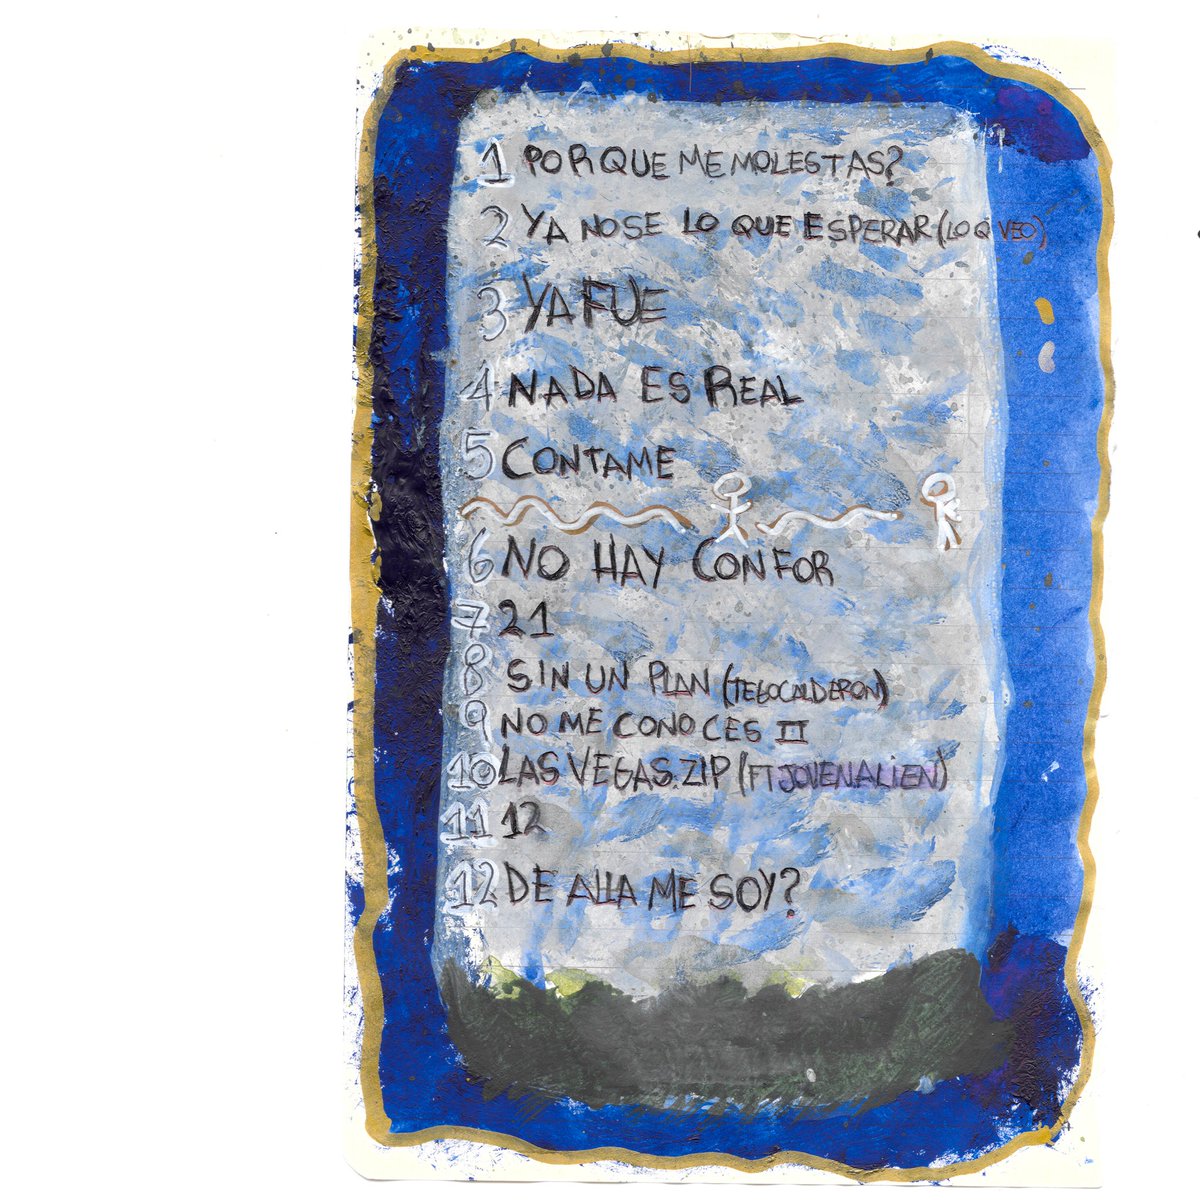 1 POR QUE ME MOLESTAS?
2 YA NO SE LO QUE ESPERAR (LO Q VEO)
3 YA FUE
4 NADA ES REAL
5 CONTAME
6 NO HAY CONFOR
7 21
8 SIN UN PLAN (TEGOCALDERON)
9 NO ME CONOCES II
10 LAS VEGAS.ZIP (FT JOVENALIEN)
11 12
12 DE ALLA ME SOY?